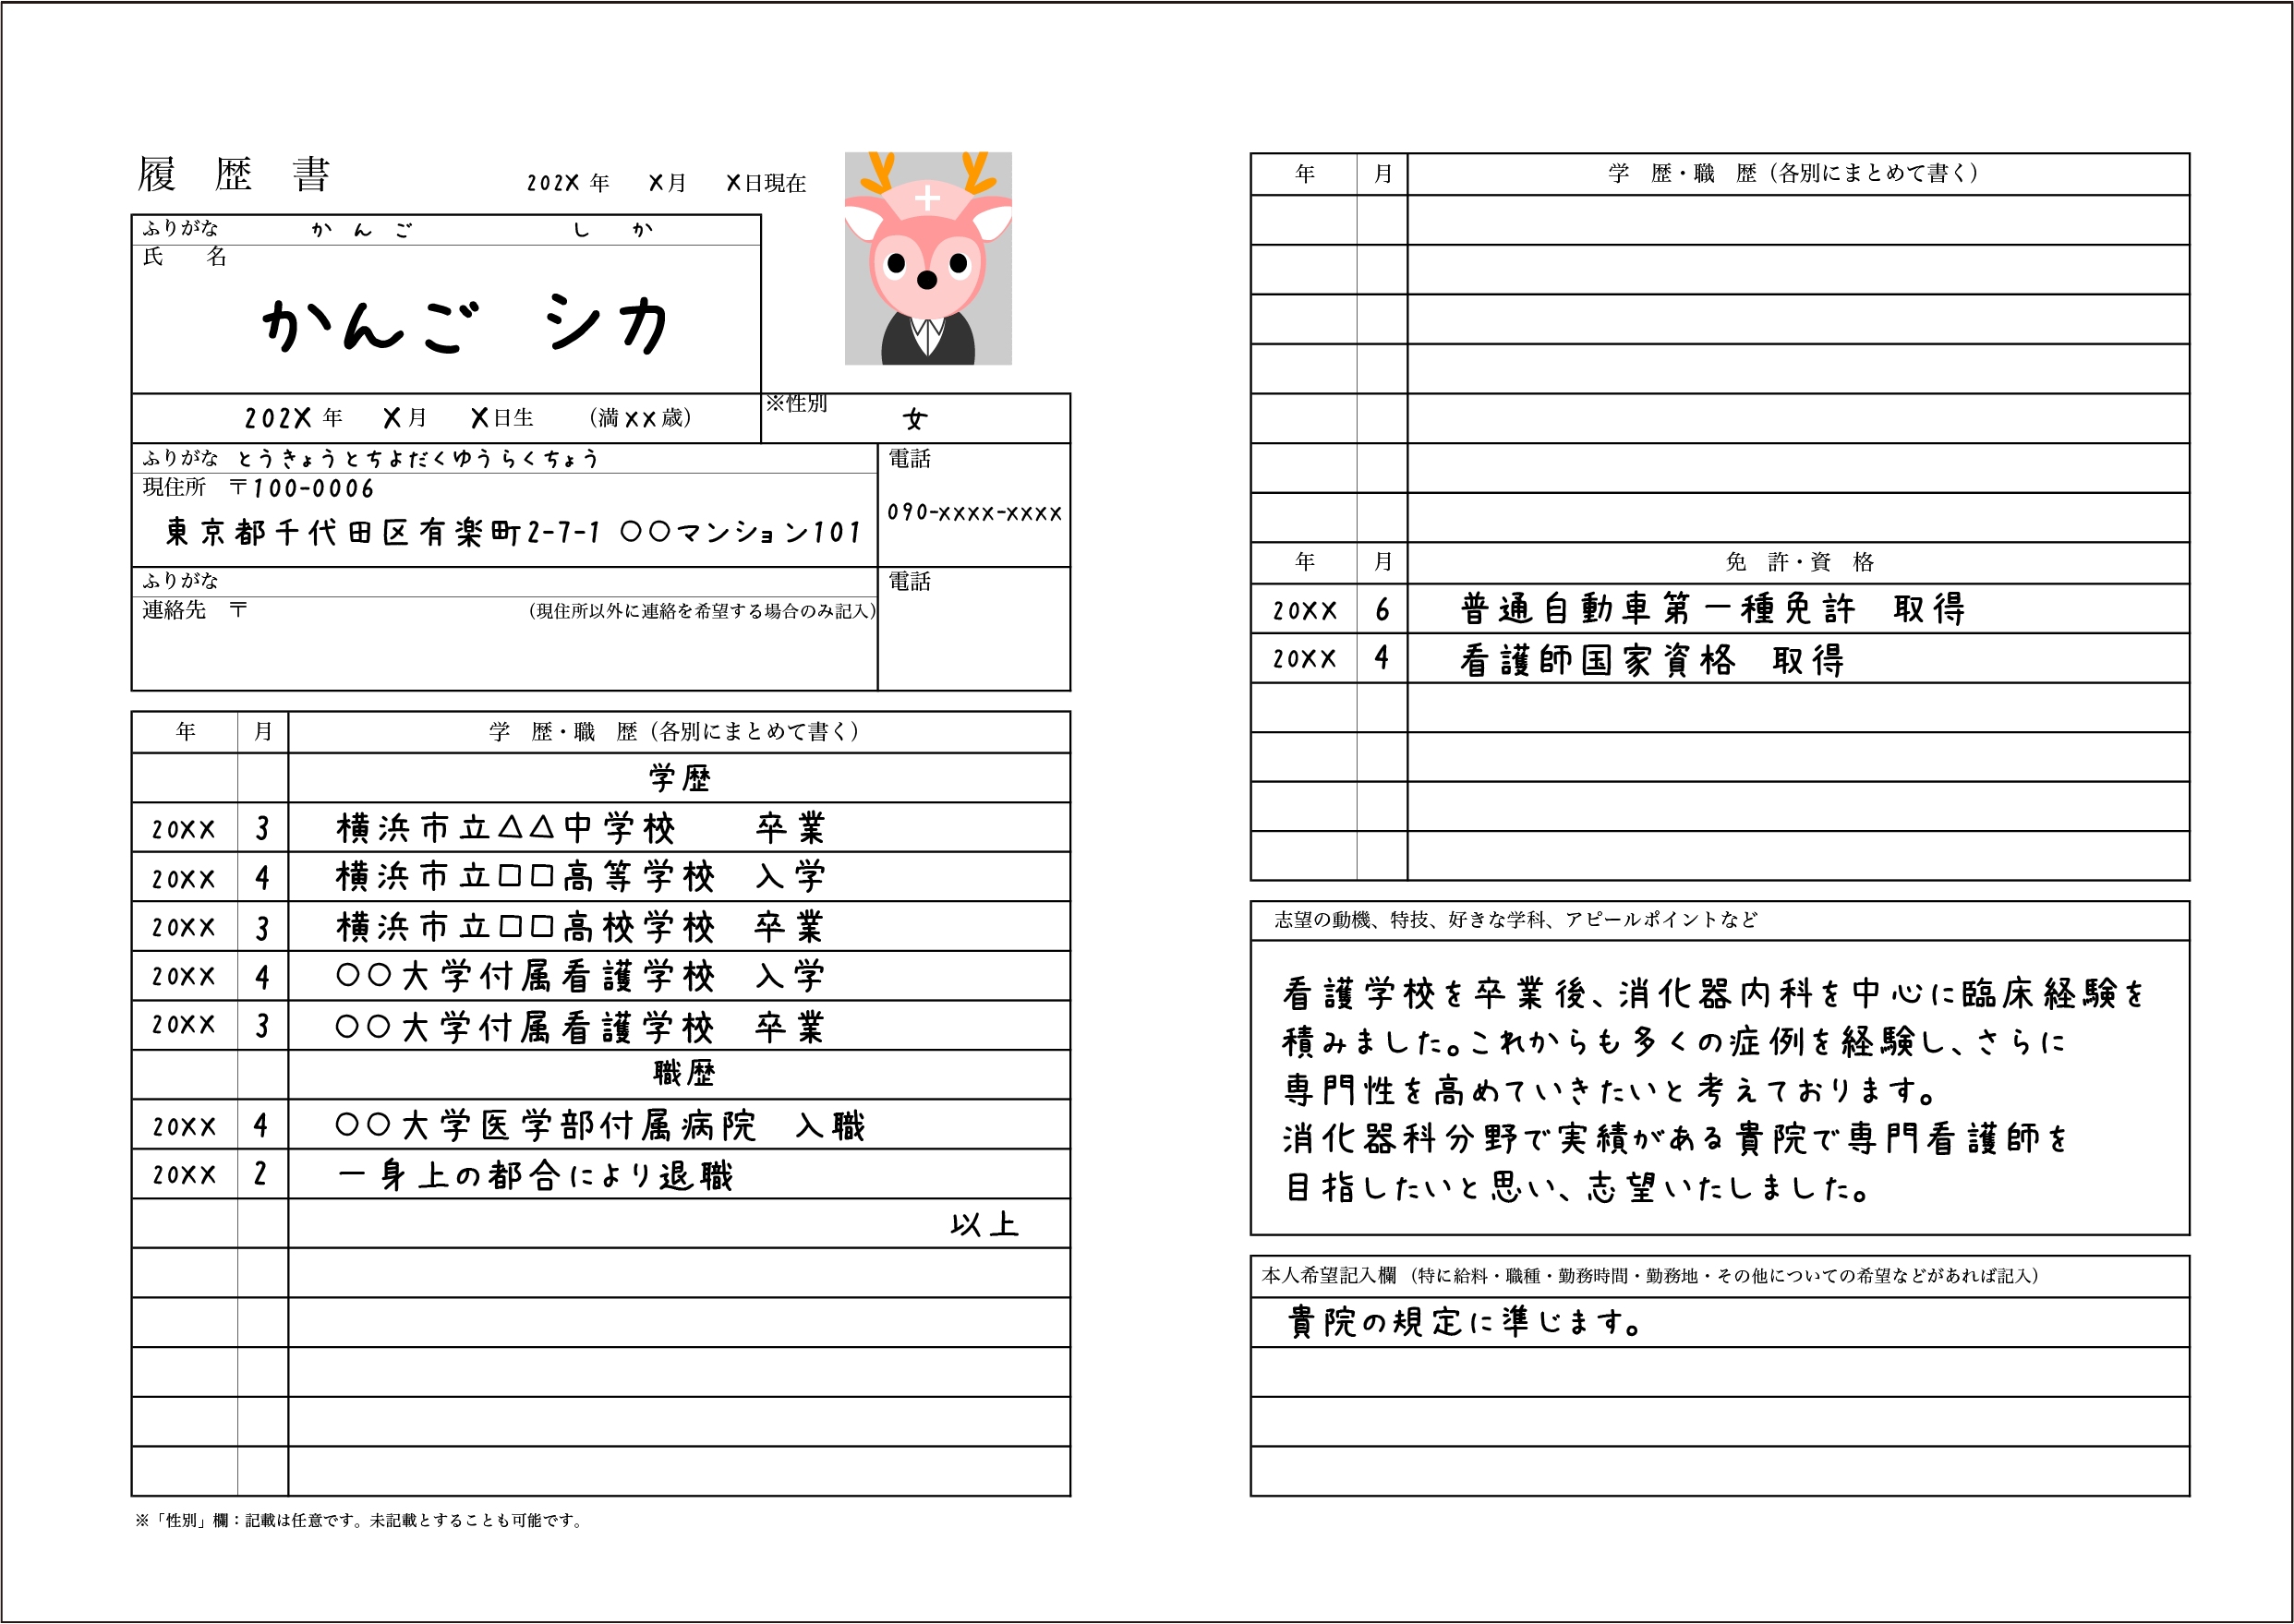 履 歴 書
202X 年 X月 X日現在
ふりがな かんご しか
氏 名
かんご シカ
202X 年 X月 X日生 (満XX歳)
※性別
女
ふりがな とうきょうとちよだくゆうらくちょう
現住所 〒100-0006
東京都千代田区有楽町2-7-1 ○○マンション101
電話
090-xxxx-xxxx
ふりがな
連絡先 〒 (現住所以外に連絡を希望する場合のみ記入)
電話
年 月 学 歴・職 歴(各別にまとめて書く)
学歴
20XX 3 横浜市立△△中学校 卒業
20XX 4 横浜市立□□高等学校 入学
20XX 3 横浜市立□□高校学校 卒業
20XX 4 ○○大学付属看護学校 入学
20XX 3 ○○大学付属看護学校 卒業
職歴
20XX 4 ○○大学医学部付属病院 入職
20XX 2 一身上の都合により退職
以上
※「性別」欄：記載は任意です。未記載とすることも可能です。
年 月 学 歴・職 歴(各別にまとめて書く)
年 月 免 許・資 格
20XX 6 普通自動車第一種免許 取得
20XX 4 看護師国家資格 取得
志望の動機、特技、好きな学科、アピールポイントなど
看護学校を卒業後、消化器内科を中心に臨床経験を
積みました。これからも多くの症例を経験し、さらに
専門性を高めていきたいと考えております。
消化器科分野で実績がある貴院で専門看護師を
目指したいと思い、志望いたしました。
本人希望記入欄 (特に給料・職種・勤務時間・勤務地・その他についての希望などがあれば記入)
貴院の規定に準じます。